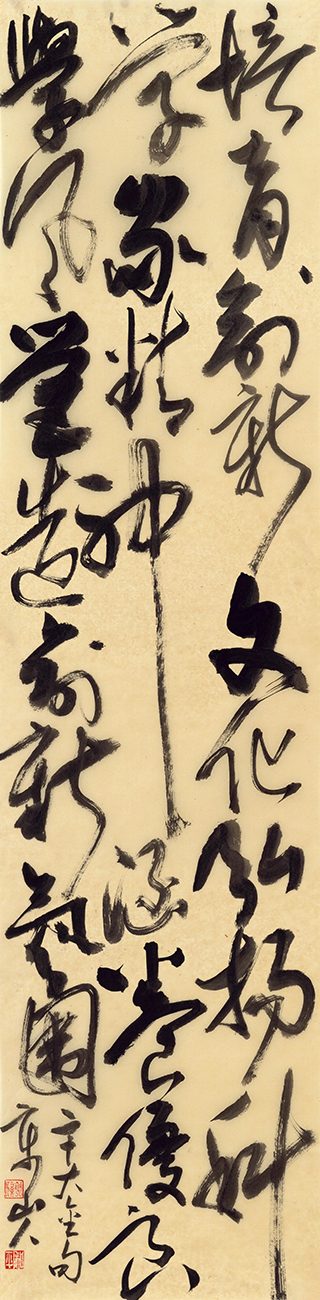 培育創新文化弘揚科
学家精神涵養優良
學風營造創新氛圍
辛大金句
東岩